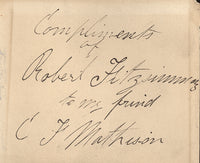 Compliments
of
Robert Fitzsimmons
to my frind
C F Mathison